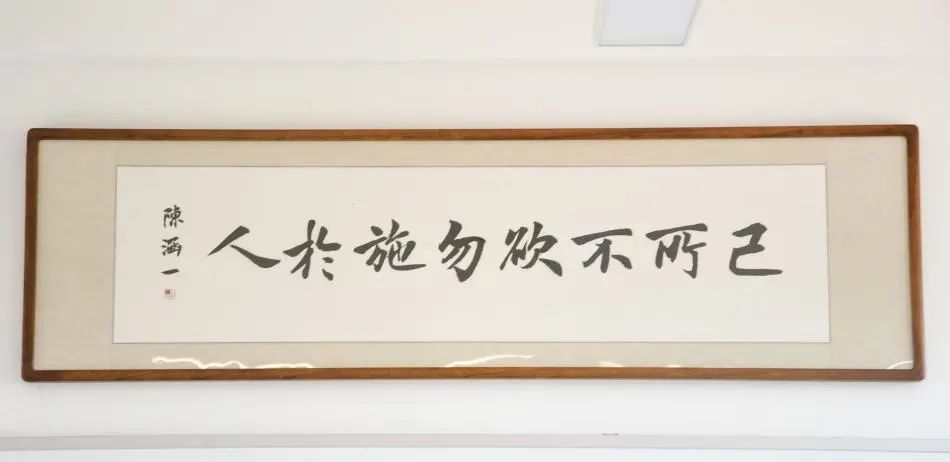 己所不欲勿施於人
陳涵一